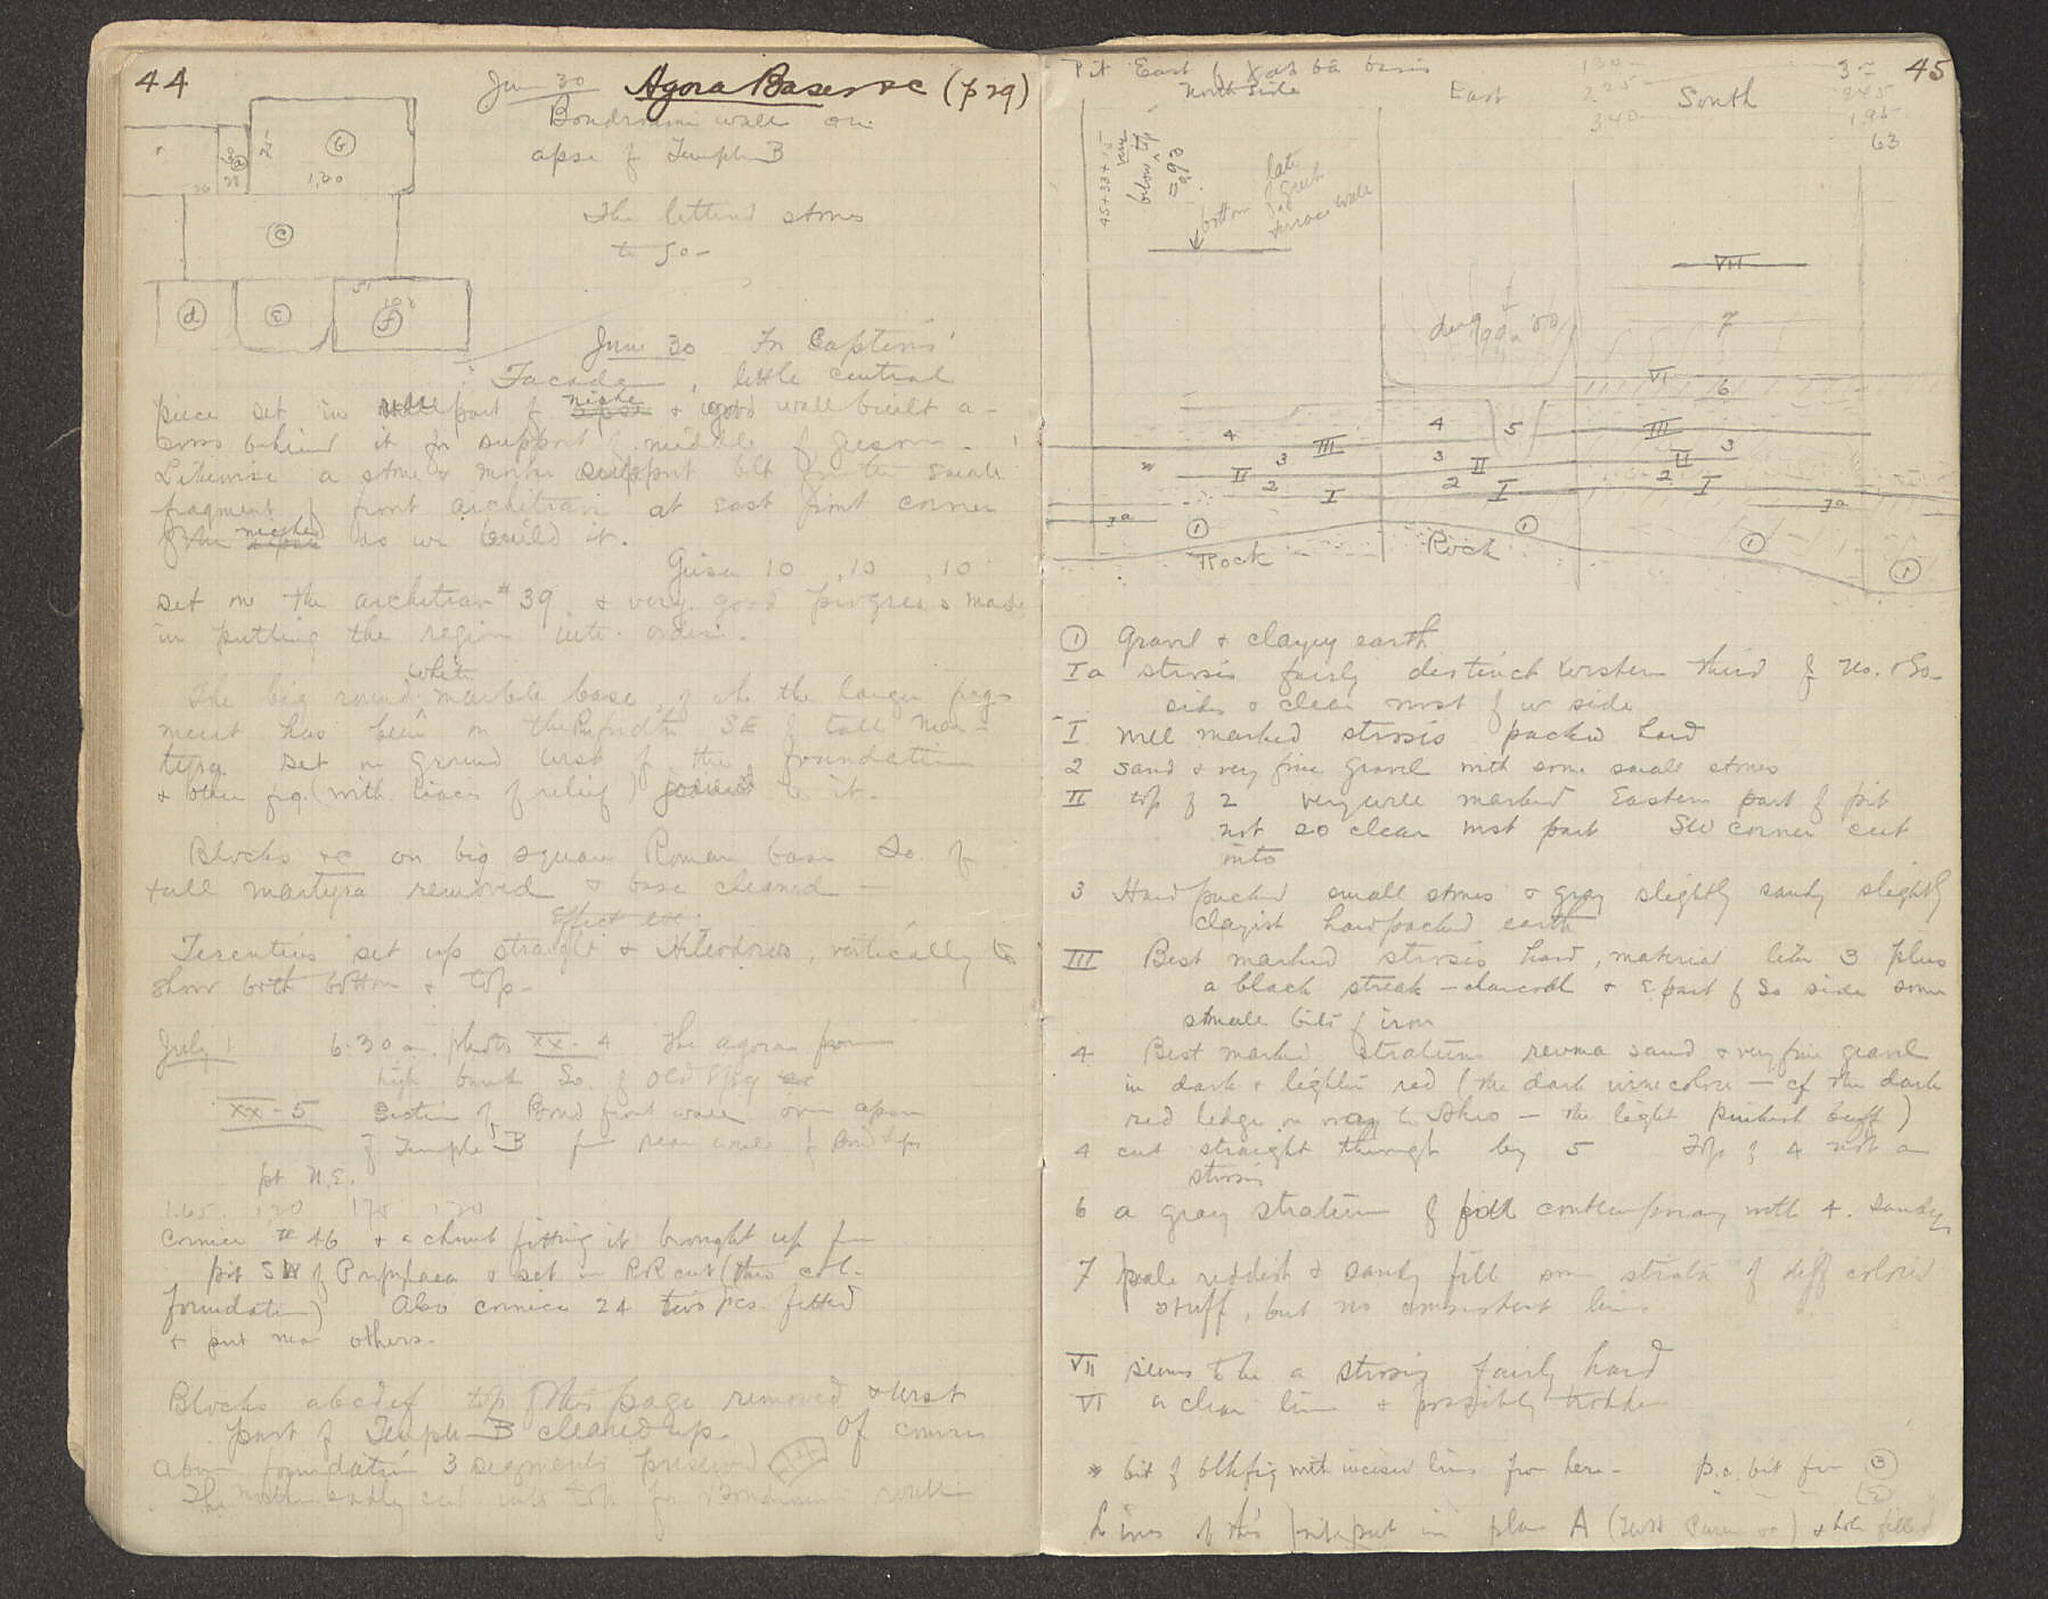 44
June 30 Agora Bases &c (p 29)
wall on
apse of Temple B
G
a
1,30
26
28
c
The lettered stones
to go -
d
e
f
June 30 In Captives'
Facade, little central
piece set in part of niche & good wall built a-
cross behind it for support of middle of
Likewise a stone & mortar support blt for the small
fragment of front architrave at East front corner
of the niched as we build it.
10 , 10 , 10
set on the architrave # 39 & very good progress made
in putting the region into order.
white
The big round marble base, of wh the larger frag-
ment has been on the SE of tall mar-
tyra set on ground west of the foundation
& other frg. (with traces of relief) joined to it.
Blocks &c on big square Roman base So. of
tall martyra removed & base cleaned —
set up straight & vertically to
show both bottom & top -
July 1 6.30 a. photos XX - 4 The agora from
high bank So. of Old
XX - 5 Section of front wall over apse
of Temple B from rear wall of
pt N.E.
1.65 120 175 120
Cornice # 46 & a chunk fitting it brought up from
pit SW of & set in RR cut (this col.
foundation) Also cornice 24 two pcs. fitted
& put near others.
Blocks abcdef top of this page removed & west
part of Temple B cleaned up. Of course
above foundation 3 segments preserved
The badly cut into top for
45
Pit East of basin
North side
East
South
130
225
340
3 -
245
1.95
63
45+33+15
below top
= 93
bottom
late
Greek
terrace wall
VII
7
VI
6
4
III
4
5
III
3
3
II
3
II
II
2
I
2
I
2
I
1a
1a
1
1
1
1
Rock
Rock
1 Gravel & clayey earth
Ia strosis fairly distinct Western third of No. & So.
sides & clear most of w side
I well marked strosis packed hard
2 sand & very fine gravel with some small stones
II top of 2 very well marked Eastern part of pit
not so clear west part SW corner cut
into
3 Hard packed small stones & gray slightly sandy slightly
clayish hardpacked earth
III Best marked strosis hard, material like 3 plus
a black streak - charcoal & E part of So side some
small bits of iron
4 Best marked stratum revma sand & very fine gravel
in dark & lighter red (the dark wine colore - cf the dark
red ledge on way to - the light pinkish buff)
4 cut straight through by 5 Top of 4 not a
strosis
6 a gray stratum of fill contemporary with 4. Sandy
7 pale reddish & sandy fill some strata of diff colored
stuff, but no consistent lines
VII seems to be a strosis fairly hard
VI a clear line & possibly trodden
* bit of blkfig with incised lines from here - p.c. bit from 3
Lines of this pit put in plan A & hole filled